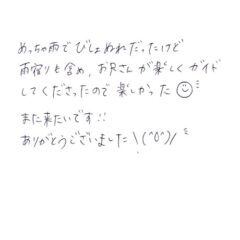 めっちゃ雨でびしょぬれだったけど
雨宿りも含め、お兄さんが楽しくガイド
してくださったので楽しかった☺
また来たいです!!
ありがとうございました\(^0^)/